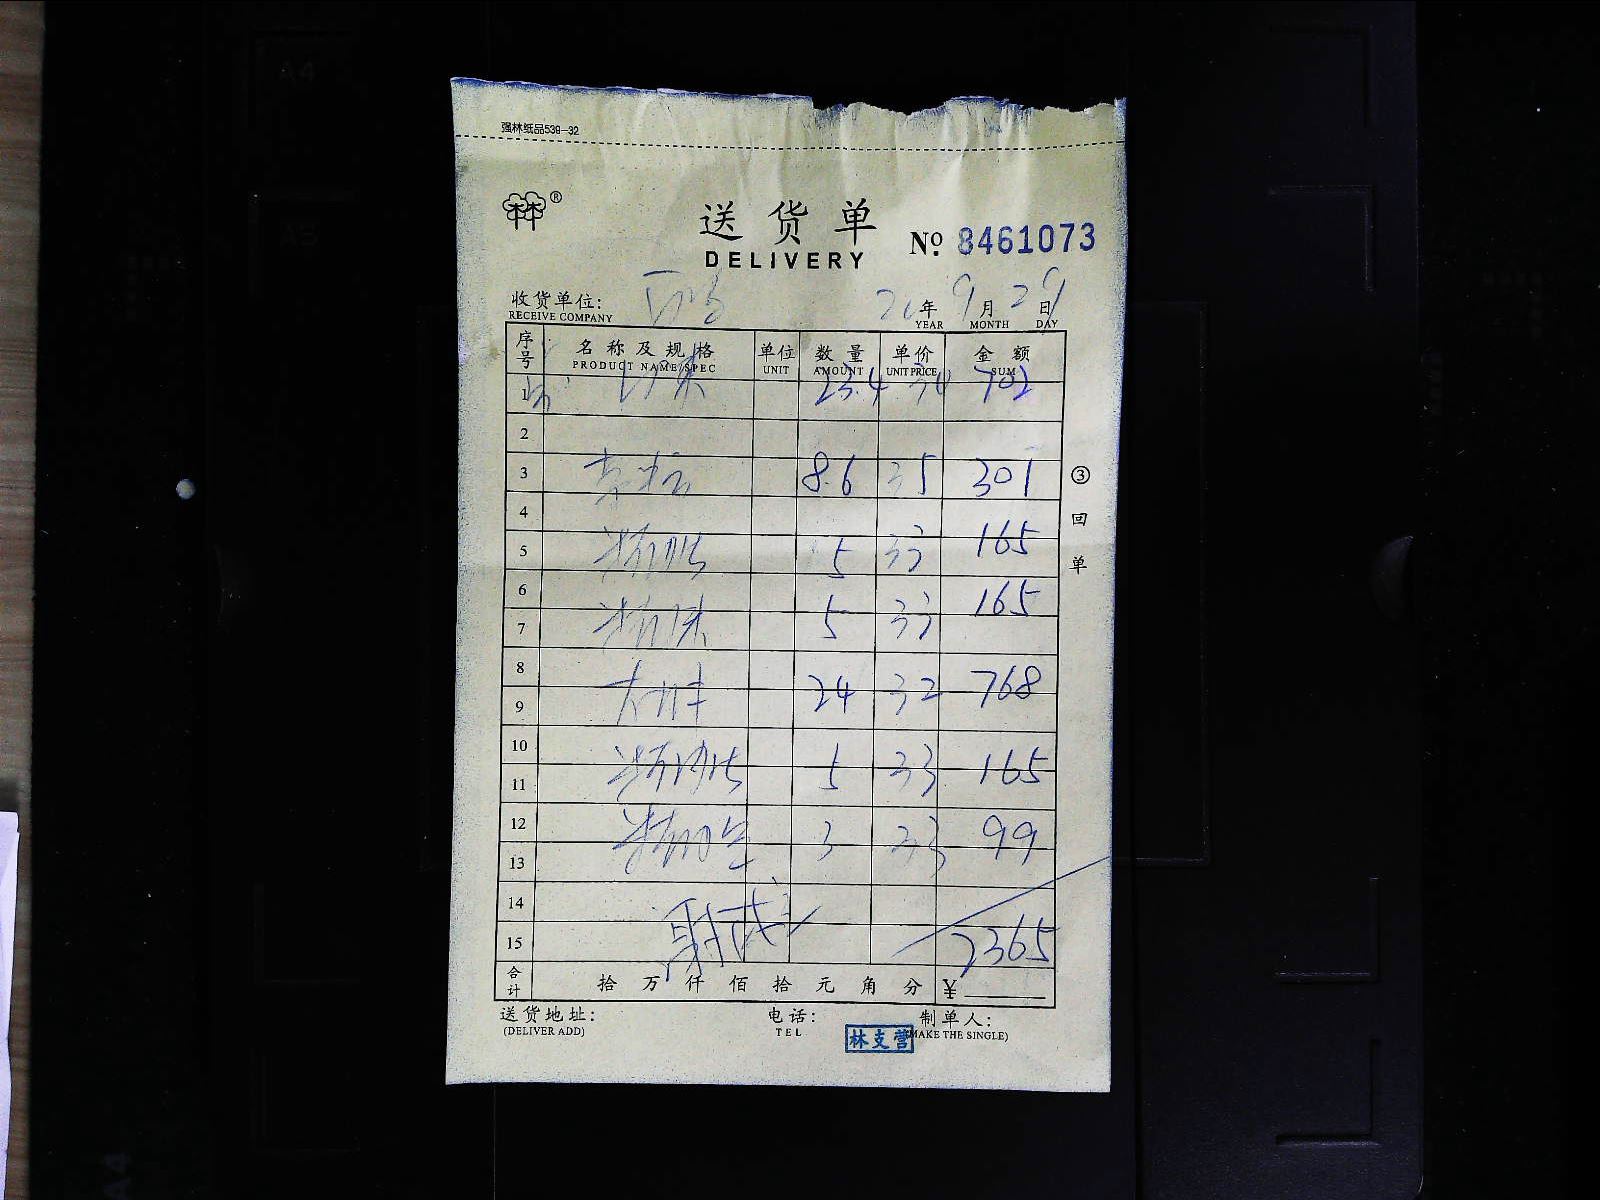 强林纸品539-32
®
送货单
DELIVERY
No. 8461073
收货单位: 年 9 月 29 日
RECEIVE COMPANY YEAR MONTH DAY
序号 名称及规格 单位 数量 单价 金额
PRODUCT NAME/SPEC UNIT AMOUNT UNIT PRICE SUM
1 23.4 30 702
2
3 8.6 35 301
4
5 5 33 165
6 165
7 5 33
8 24 32 768
9
10 5 33 165
11
12 3 33 99
13
14
15 2365
合计 拾 万 仟 佰 拾 元 角 分 ¥
③回单
送货地址: 电话: 制单人:
(DELIVER ADD) TEL (MAKE THE SINGLE)
林支营